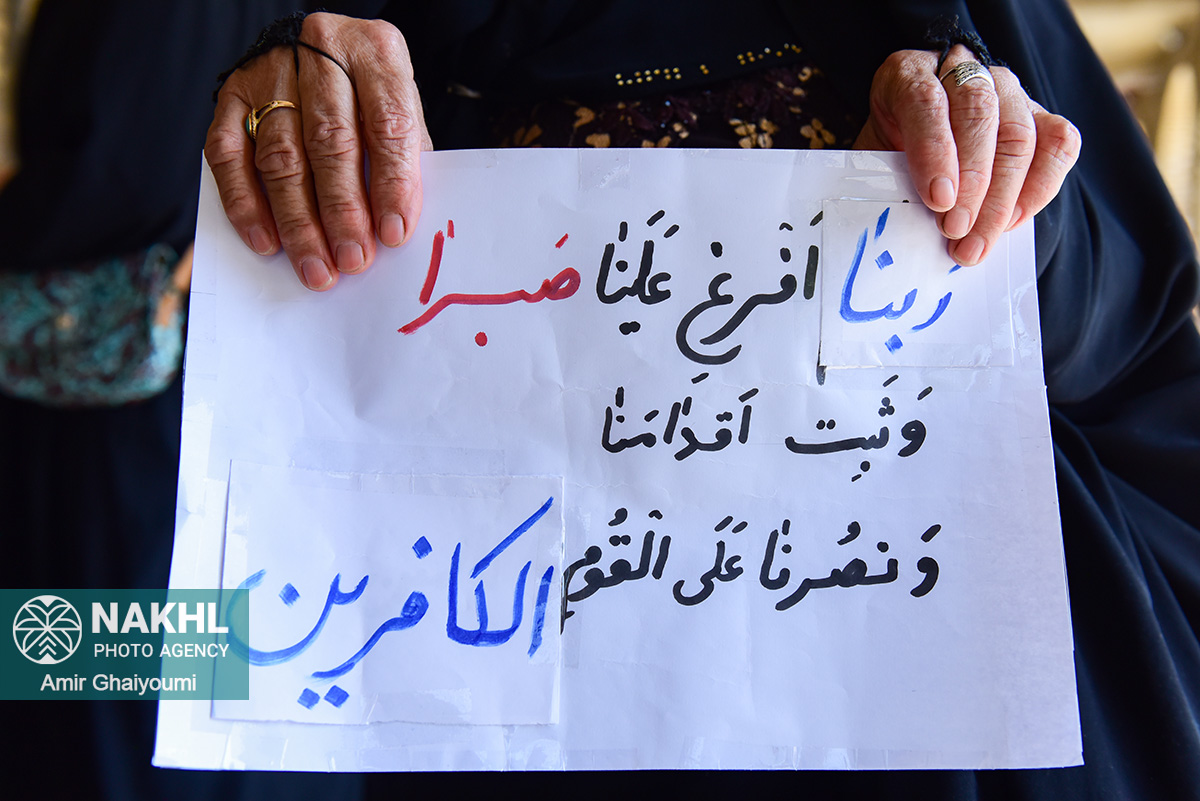 رَبنٰا اَفْرغ عَلَینٰا صَبرٰا
وَ ثَبِت اَقدٰامَنٰا
وَ نصُرنٰا عَلَی الْقَومِ الکافرین
NAKHL
PHOTO AGENCY
Amir Ghaiyoumi